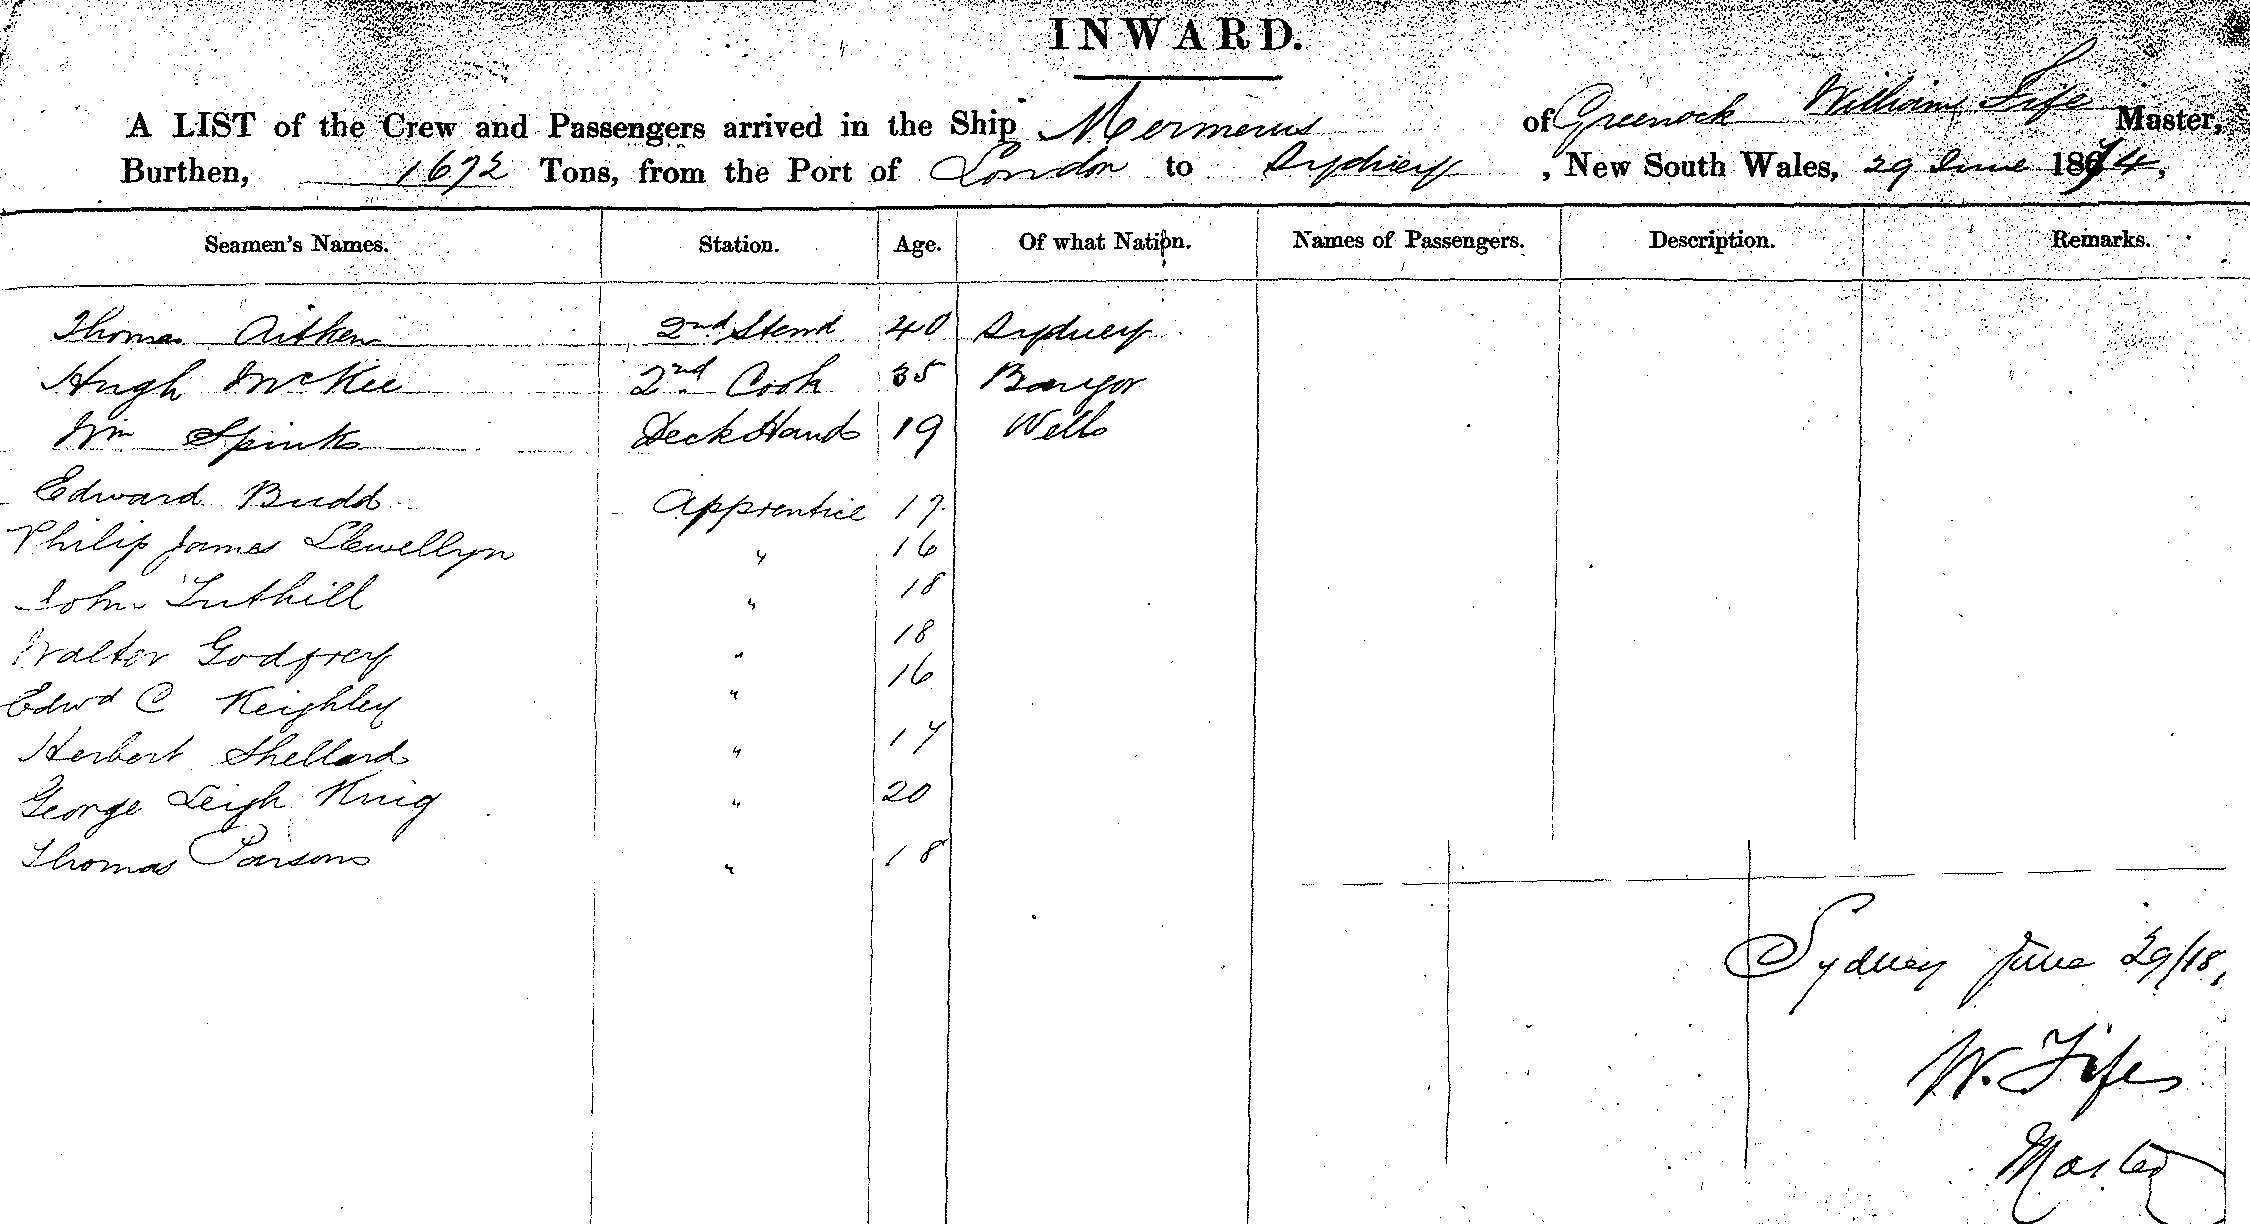 INWARD.
A LIST of the Crew and Passengers arrived in the Ship Mermerus of Greenock William Fife Master,
Burthen, 1672 Tons, from the Port of London to Sydney, New South Wales, 29 June 1874,
Seamen's Names. Station. Age. Of what Nation. Names of Passengers. Description. Remarks.
Thomas Aitken 2nd Stewd 40 Sydney
Hugh McKee 2nd Cook 35 Bangor
Wm Spinks Deck Hand 19 Wells
Edward Budd Apprentice 17
Philip James Llewellyn " 16
John Tuthill " 18
Walter Godfrey " 18
Edwd C Keighley " 16
Herbert Shellard " 17
George Leigh King " 20
Thomas Parsons " 18
Sydney June 29/18
W. Fife
Master